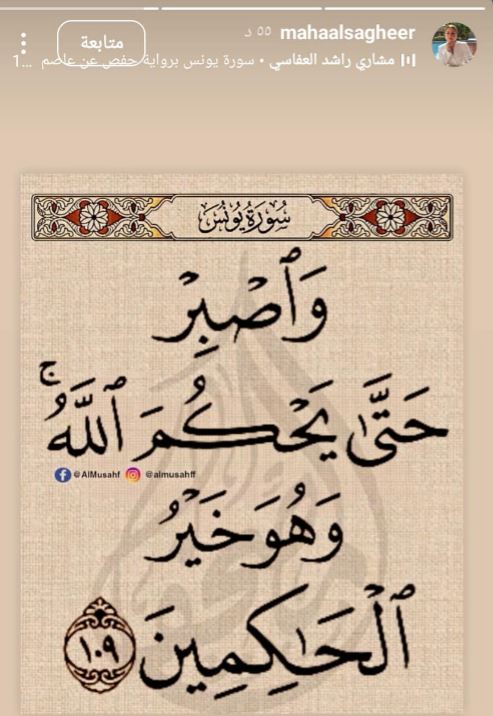 mahaalsagheer ٥٥ د
متابعة
مشاري راشد العفاسي • سورة يونس برواية حفص عن عاصم ...1
سُورَةُ يُونُسَ
وَٱصْبِرْ
حَتَّىٰ يَحْكُمَ ٱللَّهُ ۚ
@AlMusahf @almusahff
وَهُوَ خَيْرُ
ٱلْحَـٰكِمِينَ ١٠٩